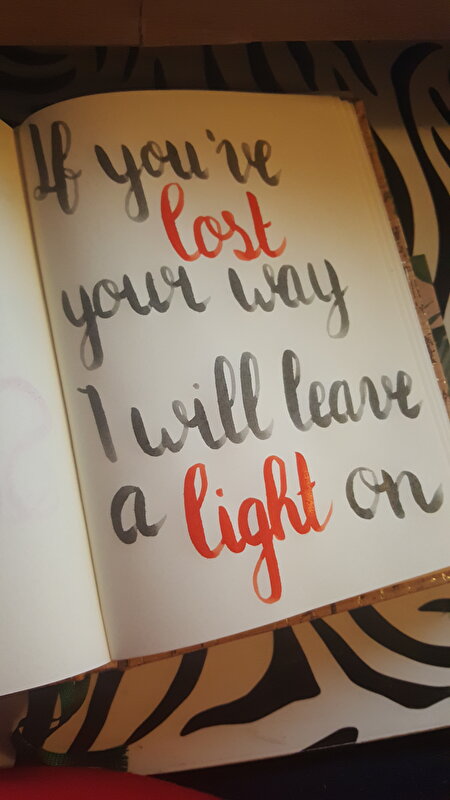 If you've
lost
your way
I will leave
a light on